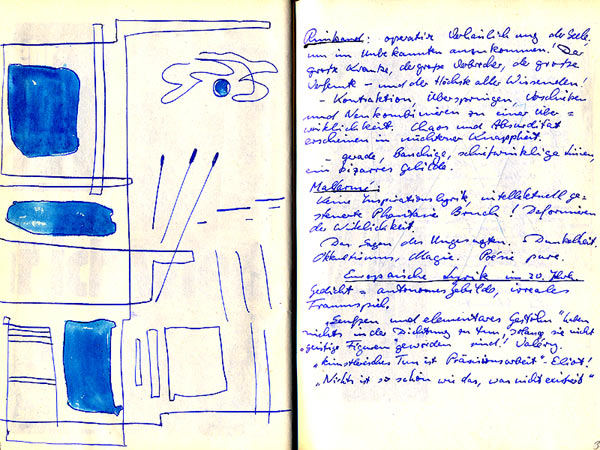 Rimbaud: operative Verhäßlichung der Seele,
um im Unbekannten anzukommen! Der
große Kranke, der große Verbrecher, der große
Verfemte – und der Höchste aller Wissenden!
– Kontraktion, Überspringen, Verschieben
und Neukombinieren zu einer Über=
wirklichkeit. Chaos und Absurdität
erscheinen in nüchterner Knappheit.
– gerade, bauchige, schiefwinklige Linien,
ein bizarres Gebilde.
Mallarmé:
Keine Inspirationslyrik, intellektuell ge-
steuerte Phantasie Bruch! Deformieren
der Wirklichkeit.
Das Sagen des Ungesagten. Dunkelheit.
Okkultismus, Magie. Poésie pure.
Europäische Lyrik im 20. Jhrh.
Gedicht = autonomes Gebilde, irreales
Traumspiel.
"Seufzen und elementares Gefühl" haben
nichts in der Dichtung zu tun, solang sie nicht
"geistige Figuren" geworden sind! Valéry.
"künstlerisches Tun ist Präzisionsarbeit" – Eliot!
"Nichts ist so schön wie das, was nicht existiert"
3